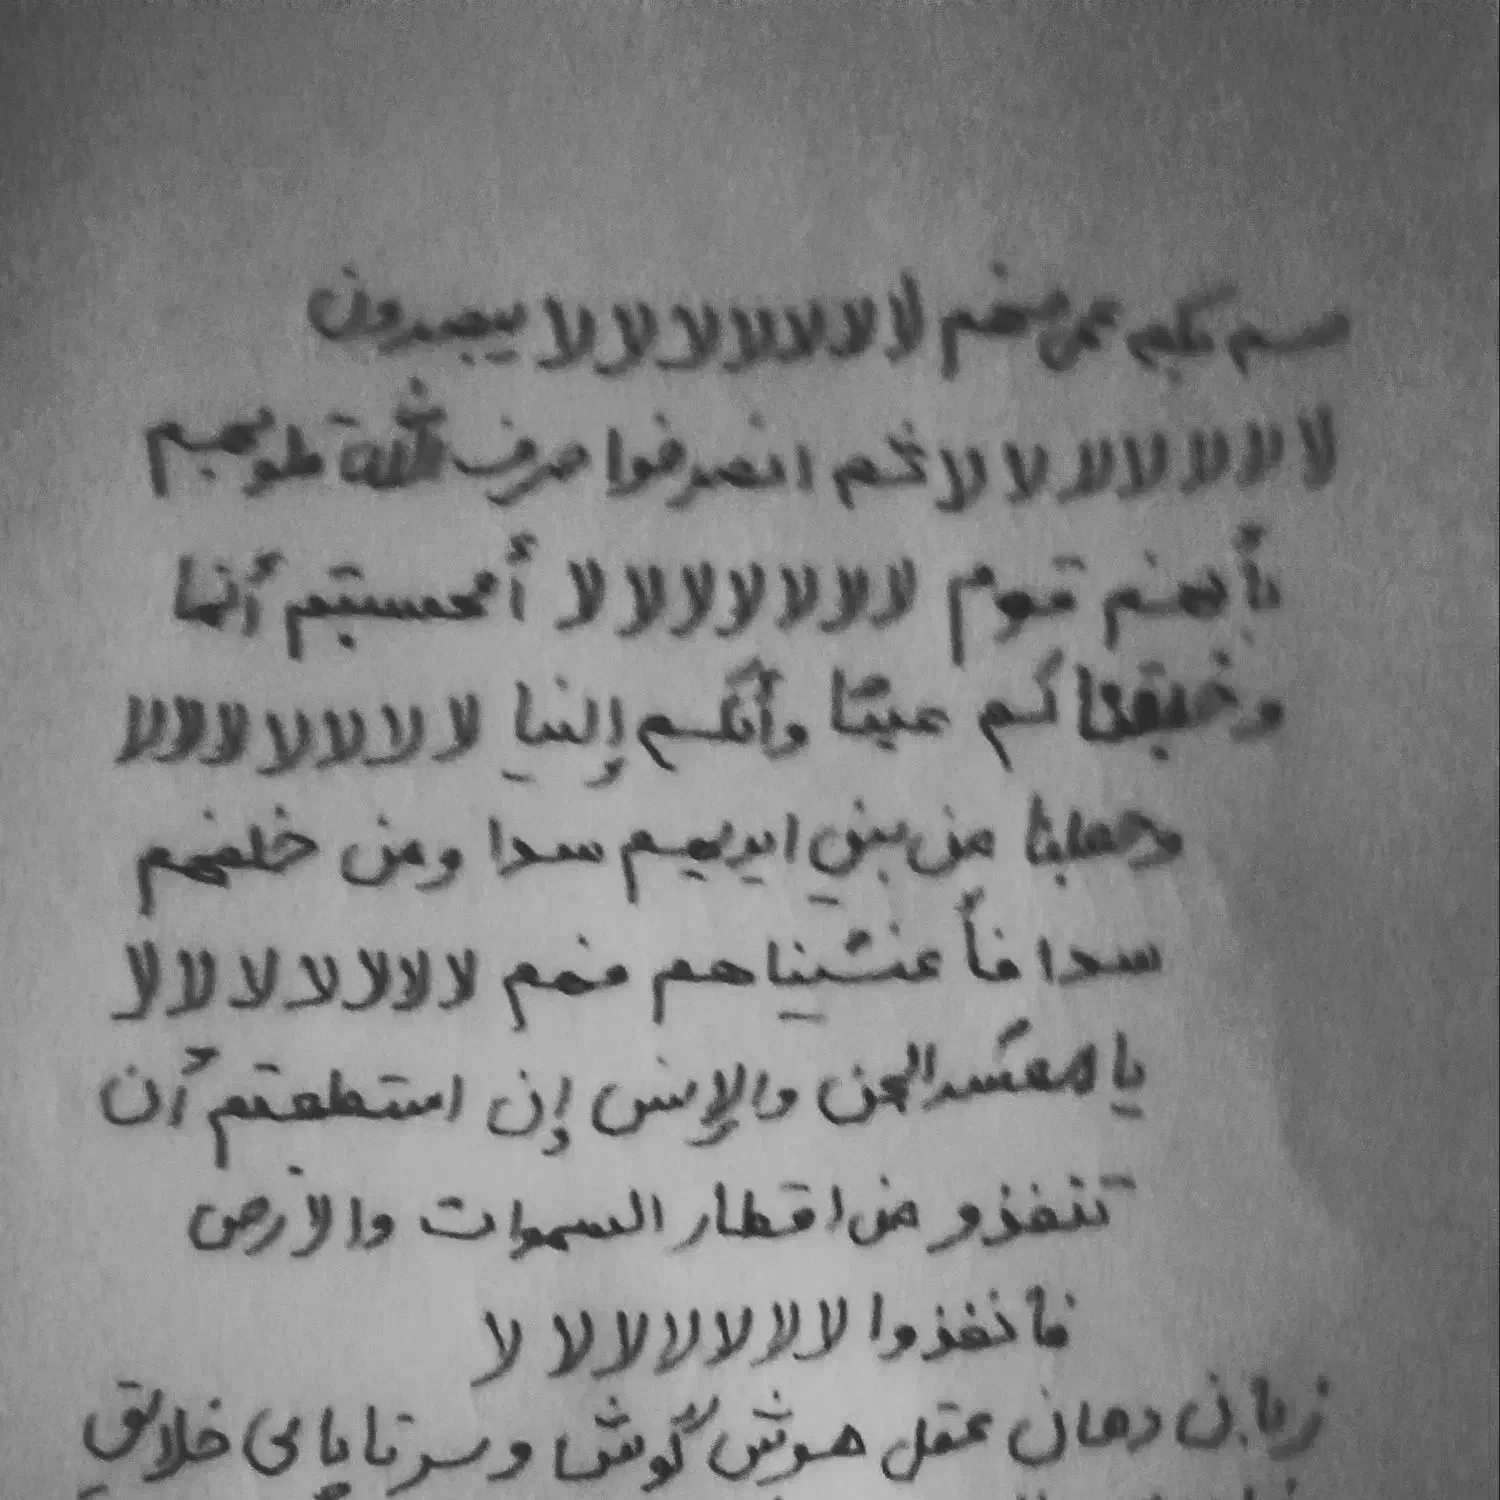 صم بكم عمى فهم لا لا لا لا لا لا لا لا يبصرون
لا لا لا لا لا لا لا ثم انصرفوا صرف الله قلوبهم
بأنهم قوم لا لا لا لا لا لا لا أفحسبتم أنما
وخلقناكم عبثا وأنكم إلينا لا لا لا لا لا لا لا
وجعلنا من بين ايديهم سدا ومن خلفهم
سدا فأغشيناهم فهم لا لا لا لا لا لا لا
يا معشر الجن والإنس إن استطعتم أن
تنفذو من اقطار السموات والارض
فانفذوا لا لا لا لا لا لا لا
زبان دهان عقل هوش گوش و سرتاپای خلایق